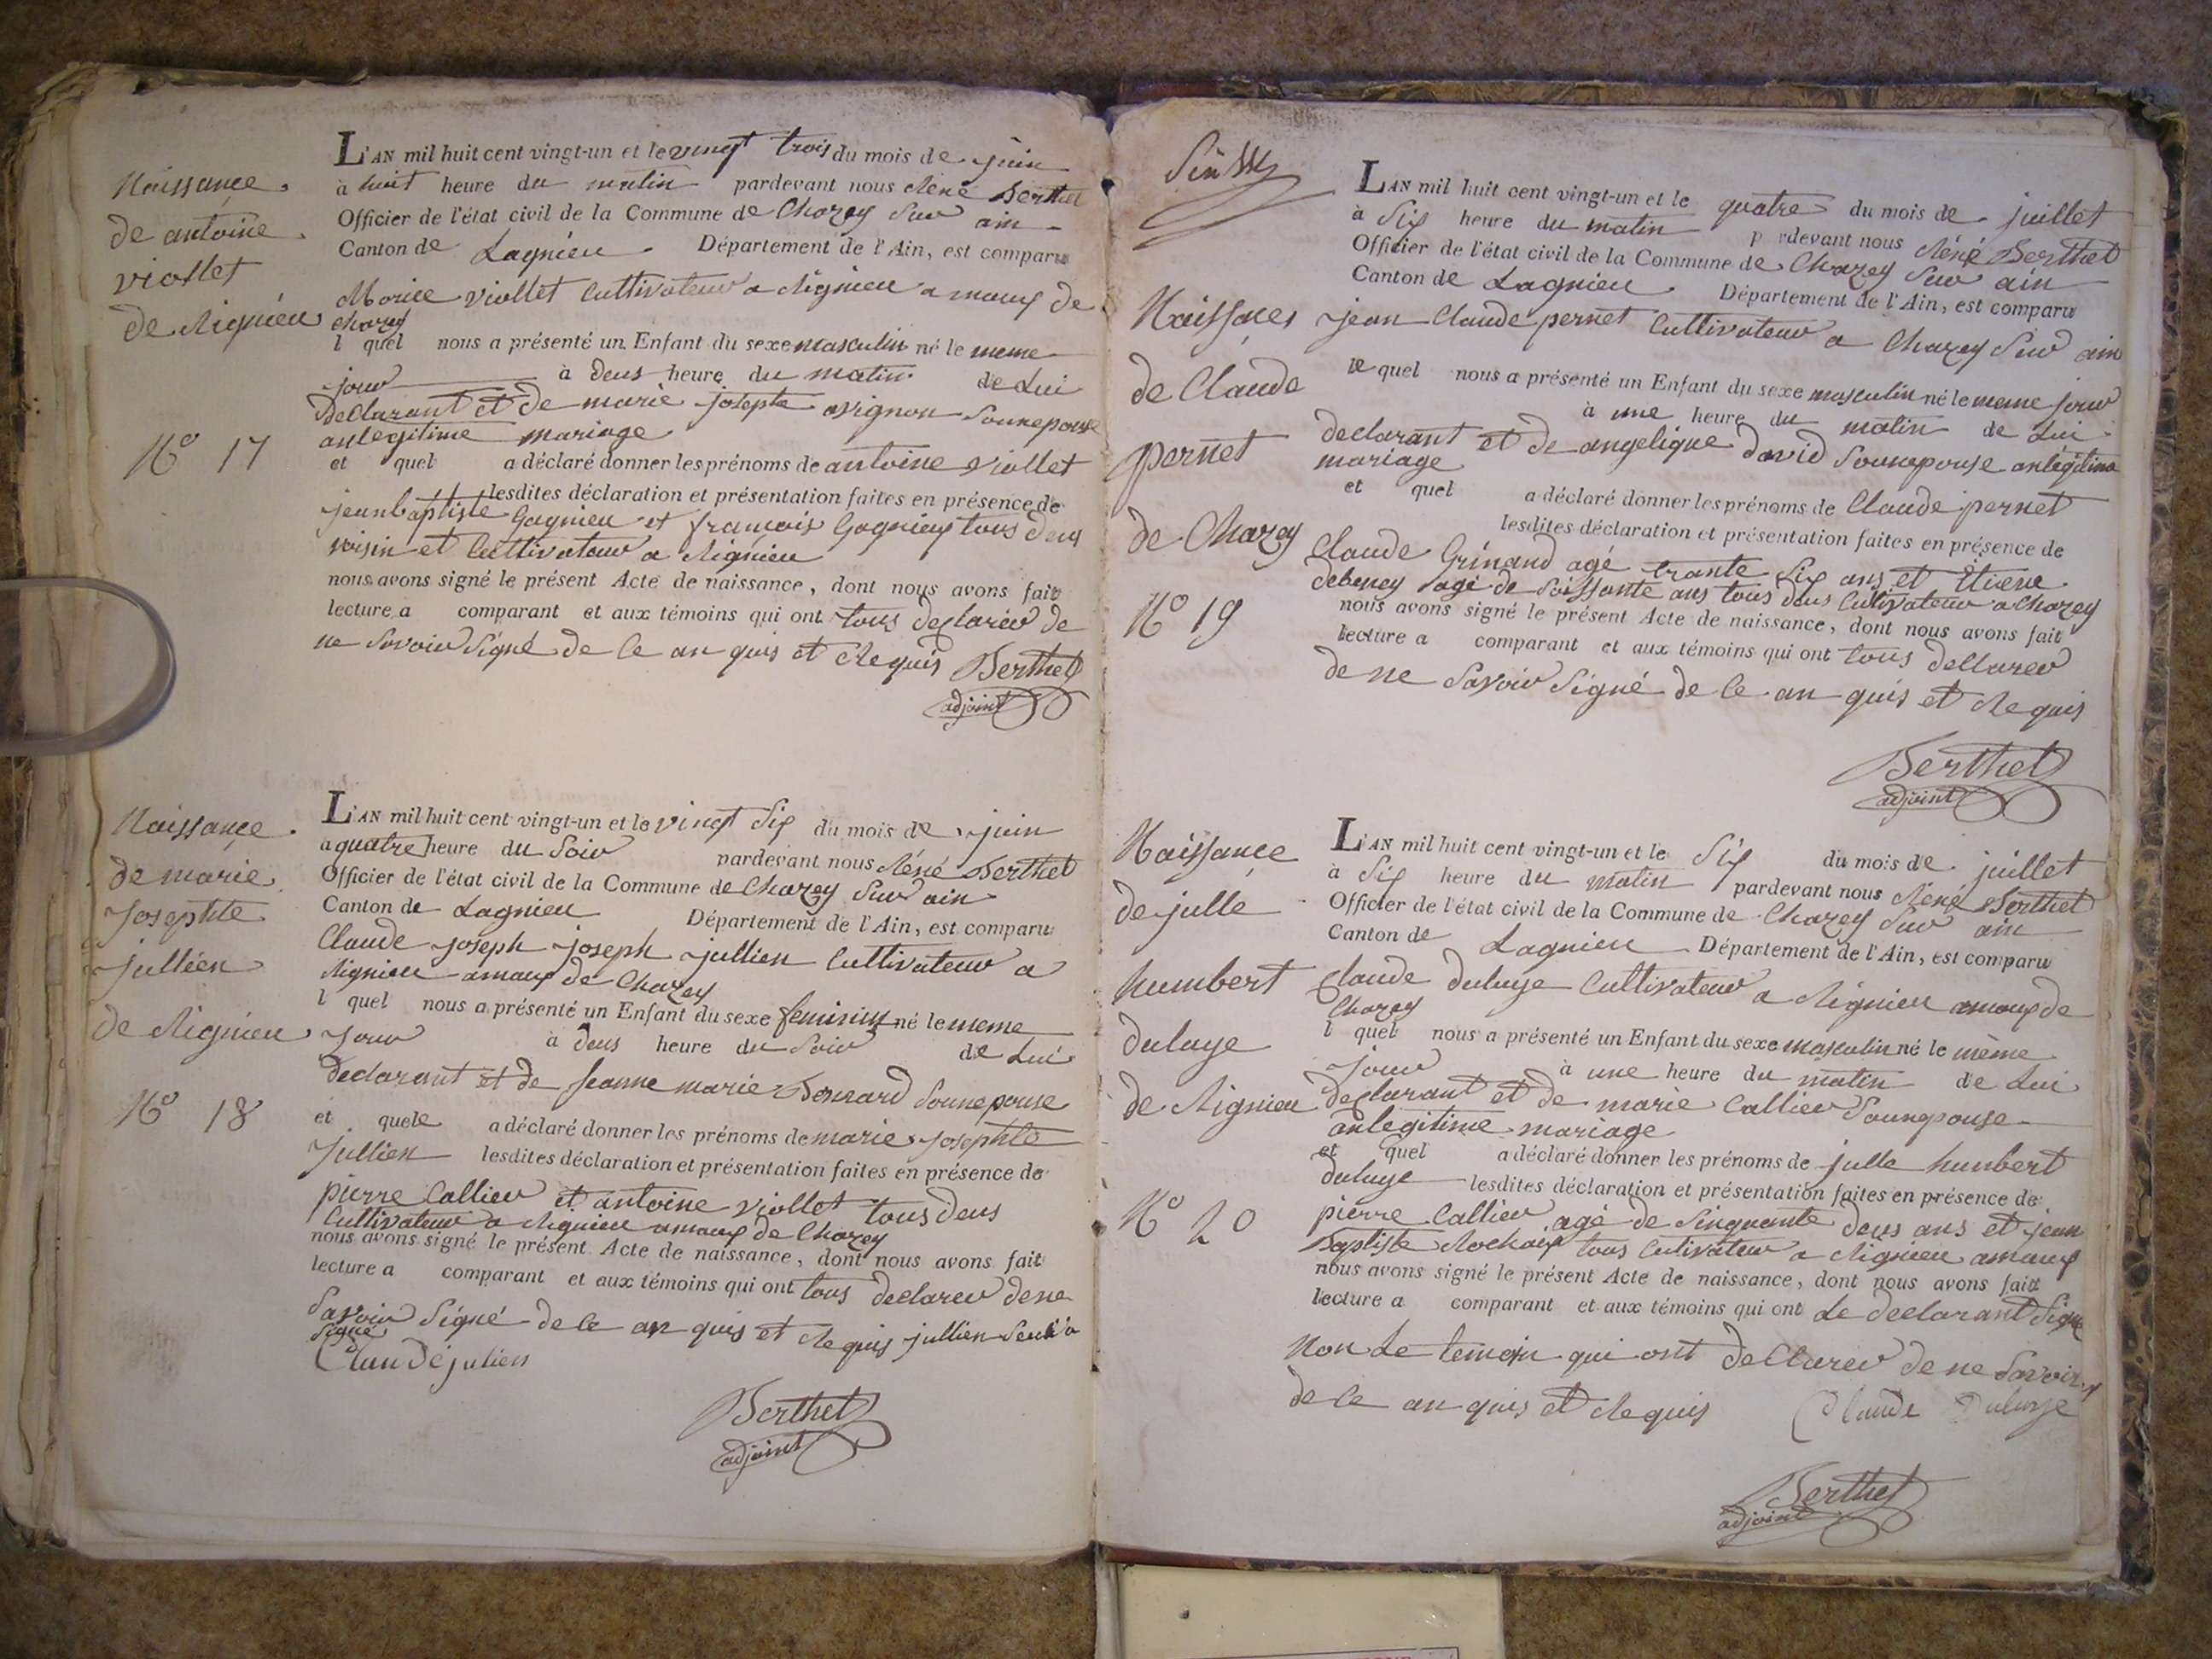 Naissance
de antoine
viollet
de Rignieu
N° 17
L'AN mil huit cent vingt-un et le vingt trois du mois de juin
à huit heure du matin pardevant nous Réné Berthet
Officier de l'état civil de la Commune de Chazey Sur ain
Canton de Lagnieu Département de l'Ain, est comparu
Morice viollet Cultivateur a Rignieu amaux de
Chazey
l quel nous a présenté un Enfant du sexe masculin né le meme
jour à deus heure du matin de Lui
declarant et de marie josepte avignon Sounepouse
anlegitime mariage
et quel a déclaré donner les prénoms de antoine viollet
lesdites déclaration et présentation faites en présence de
jeanbaptiste Gagnieu et francois Gagnieu tous deus
voisin et Cultivateur a Rignieu
nous avons signé le présent Acte de naissance, dont nous avons fait
lecture a comparant et aux témoins qui ont tous declarér de
ne Savoir Signé de Ce an quis et Requis Berthet
adjoint
Naissance
de marie
Josephte
jullien
de Rignieu
N° 18
L'AN mil huit cent vingt-un et le vingt Six du mois de juin
a quatre heure du Soir pardevant nous Réné Berthet
Officier de l'état civil de la Commune de Chazey Sur ain
Canton de Lagnieu Département de l'Ain, est comparu
Claude joseph joseph jullien Cultivateur a
Rignieu amaux de Chazey
l quel nous a présenté un Enfant du sexe feminin né le meme
Jour à deus heure du Soir de Lui
declarant et de Jeanne marie Bonnard Sounepouse
et quele a déclaré donner les prénoms de marie Josephte
Jullien lesdites déclaration et présentation faites en présence de
pierre Callier et antoine viollet tous deus
Cultivateur a Rignieu amaux de Chazey
nous avons signé le présent Acte de naissance, dont nous avons fait
lecture a comparant et aux témoins qui ont tous declarer de ne
Savoir Signé de Ce an quis et Requis jullien Seul a
Signé
Claudéjulien
Berthet
adjoint
L'AN mil huit cent vingt-un et le quatre du mois de juillet
à Six heure du matin p rdevant nous Réné Berthet
Officier de l'état civil de la Commune de Chazey Sur ain
Canton de Lagnieu Département de l'Ain, est comparu
Naissances
de Claude
pernet
de Chazey
N° 19
jean Claude pernet Cultivateur a Chazey Sur ain
le quel nous a présenté un Enfant du sexe masculin né le meme jour
à une heure du matin de Lui
declarant et de angelique david Sounepouse anlégitime
mariage
et quel a déclaré donner les prénoms de Claude pernet
lesdites déclaration et présentation faites en présence de
Claude Grinand agé trante Six ans et Etiene
debeney agé de Soissante ans tous deus Cultivateur a Chazey
nous avons signé le présent Acte de naissance, dont nous avons fait
lecture a comparant et aux témoins qui ont tous dellarer
de ne Savoir Signé de Ce an quis et Requis
Berthet
adjoint
Naissance
de julle
humbert
duluye
de Rignieu
N° 20
L'AN mil huit cent vingt-un et le Six du mois de juillet
à Six heure du matin pardevant nous Réné Berthet
Officier de l'état civil de la Commune de Chazey Sur ain
Canton de Lagnieu Département de l'Ain, est comparu
Claude duluye Cultivateur a Rignieu amaux de
Chazey
l quel nous a présenté un Enfant du sexe masculin né le même
jour à une heure du matin de Lui
declarant et de marie Callier Sounepouse
anlegitime mariage
et quel a déclaré donner les prénoms de julle humbert
duluye lesdites déclaration et présentation faites en présence de
pierre Callier agé de Sinquante deus ans et jean
Baptiste Rochaix tous Cultivateur a Rignieu amaux
nous avons signé le présent Acte de naissance, dont nous avons fait
lecture a comparant et aux témoins qui ont Le declarant Signe
Non Le temoin qui ont declarer de ne Savoir
de Ce an quis et Requis Claude Duluye
Berthet
adjoint